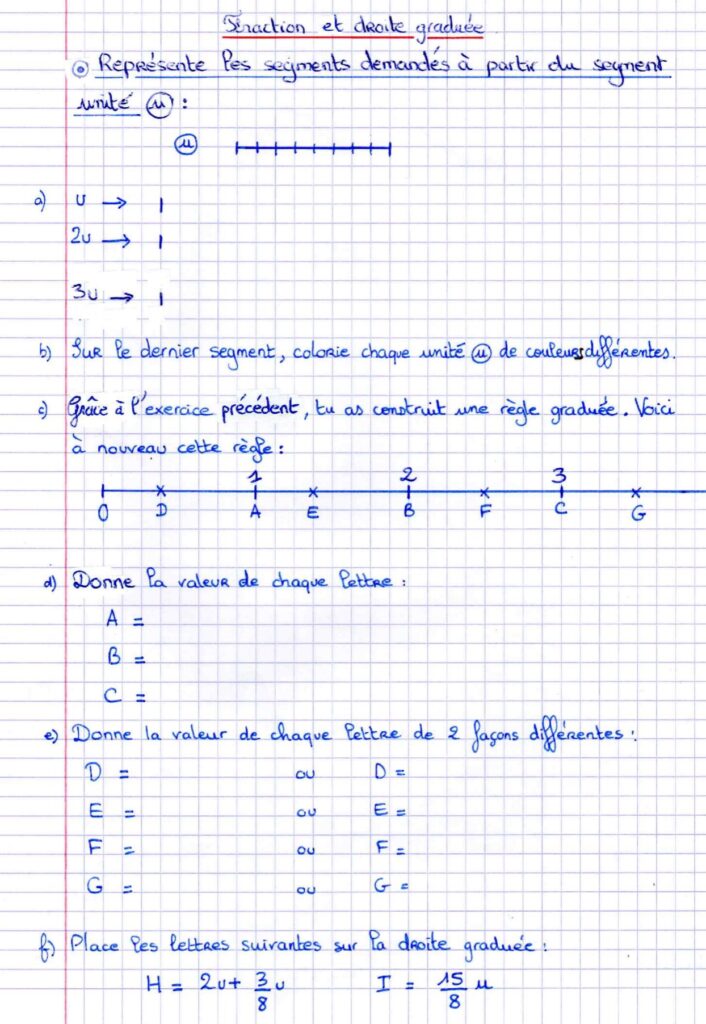 Fraction et droite graduée
Représente les segments demandés à partir du segment
unité u :
u
a) u → |
2u → |
3u → |
b) Sur le dernier segment, colorie chaque unité u de couleurs différentes.
c) Grâce à l'exercice précédent, tu as construit une règle graduée. Voici
à nouveau cette règle :
1 2 3
0 D A E B F C G
d) Donne la valeur de chaque lettre :
A =
B =
C =
e) Donne la valeur de chaque lettre de 2 façons différentes :
D = ou D =
E = ou E =
F = ou F =
G = ou G =
f) Place les lettres suivantes sur la droite graduée :
H = 2u + 3/8 u I = 15/8 u